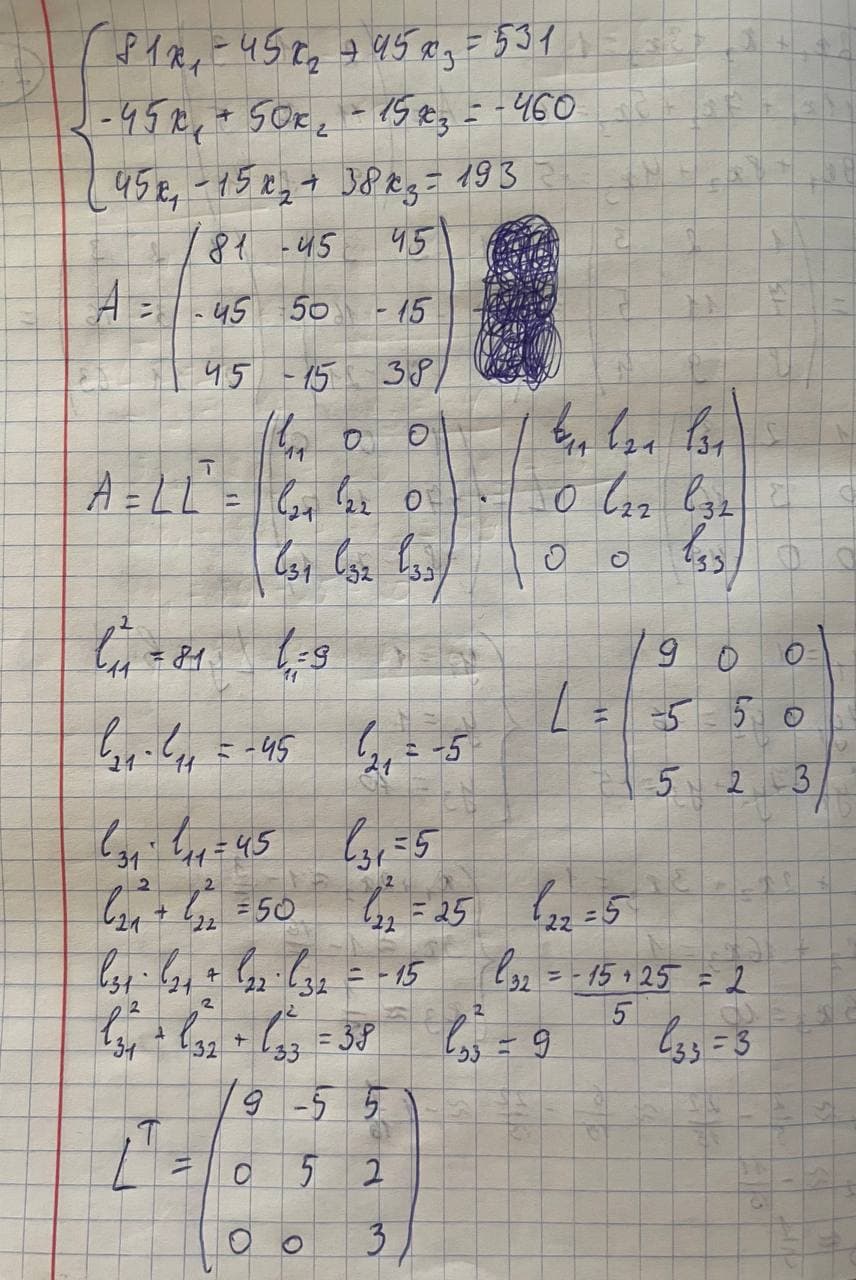 81x₁ - 45x₂ + 45x₃ = 531
-45x₁ + 50x₂ - 15x₃ = -460
45x₁ - 15x₂ + 38x₃ = 193
81 -45 45
A = -45 50 -15
45 -15 38
l₁₁ 0 0 l₁₁ l₂₁ l₃₁
A = LLᵀ = l₂₁ l₂₂ 0 · 0 l₂₂ l₃₂
l₃₁ l₃₂ l₃₃ 0 0 l₃₃
l₁₁² = 81 l₁₁ = 9
l₂₁ · l₁₁ = -45 l₂₁ = -5
9 0 0
L = -5 5 0
5 2 3
l₃₁ · l₁₁ = 45 l₃₁ = 5
l₂₁² + l₂₂² = 50 l₂₂² = 25 l₂₂ = 5
l₃₁ · l₂₁ + l₂₂ · l₃₂ = -15 l₃₂ = (-15 + 25)/5 = 2
l₃₁² + l₃₂² + l₃₃² = 38 l₃₃² = 9 l₃₃ = 3
9 -5 5
Lᵀ = 0 5 2
0 0 3